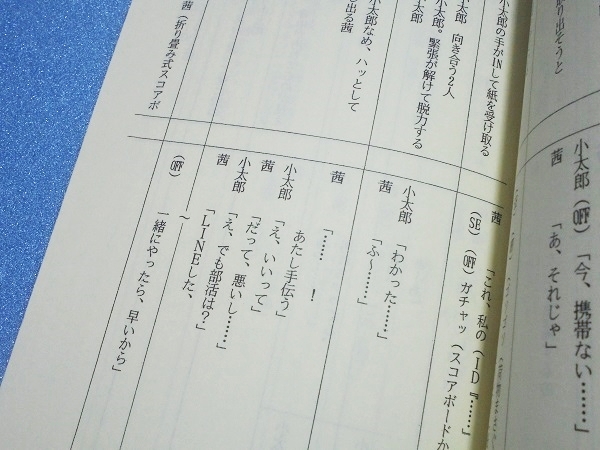 り出そうと
小太郎(OFF)「今、携帯ない……」
茜「あ、それじゃ」
小太郎の手がINして紙を受け取る
茜「これ、私の(ID『……」
(SE)(OFF)ガチャッ(スコアボードか
太郎 向き合う2人
小太郎。緊張が解けて脱力する
太郎
小太郎「わかった……」
茜「ふ〜……」
太郎なめ、ハッとして
出る茜
茜「…… !
あたし手伝う」
小太郎「え、いいって」
茜「だって、悪いし……」
小太郎「え、でも部活は?」
茜「LINEした、
茜(折り畳み式スコアボ
(OFF)〜
一緒にやったら、早いから」